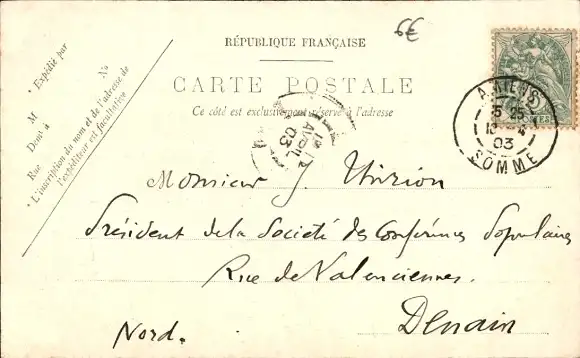 6€
RÉPUBLIQUE FRANÇAISE
CARTE POSTALE
Ce côté est exclusivement réservé à l'adresse
* Expédié par
M
No
Dont à
Rue
* L'inscription du nom et de l'adresse de
l'expéditeur est facultative
AMIENS
5 25
4
03
SOMME
AVRIL
03
Monsieur J. Thirion
Président de la Société des Conférences Populaires
Rue de Valenciennes.
Denain
Nord.